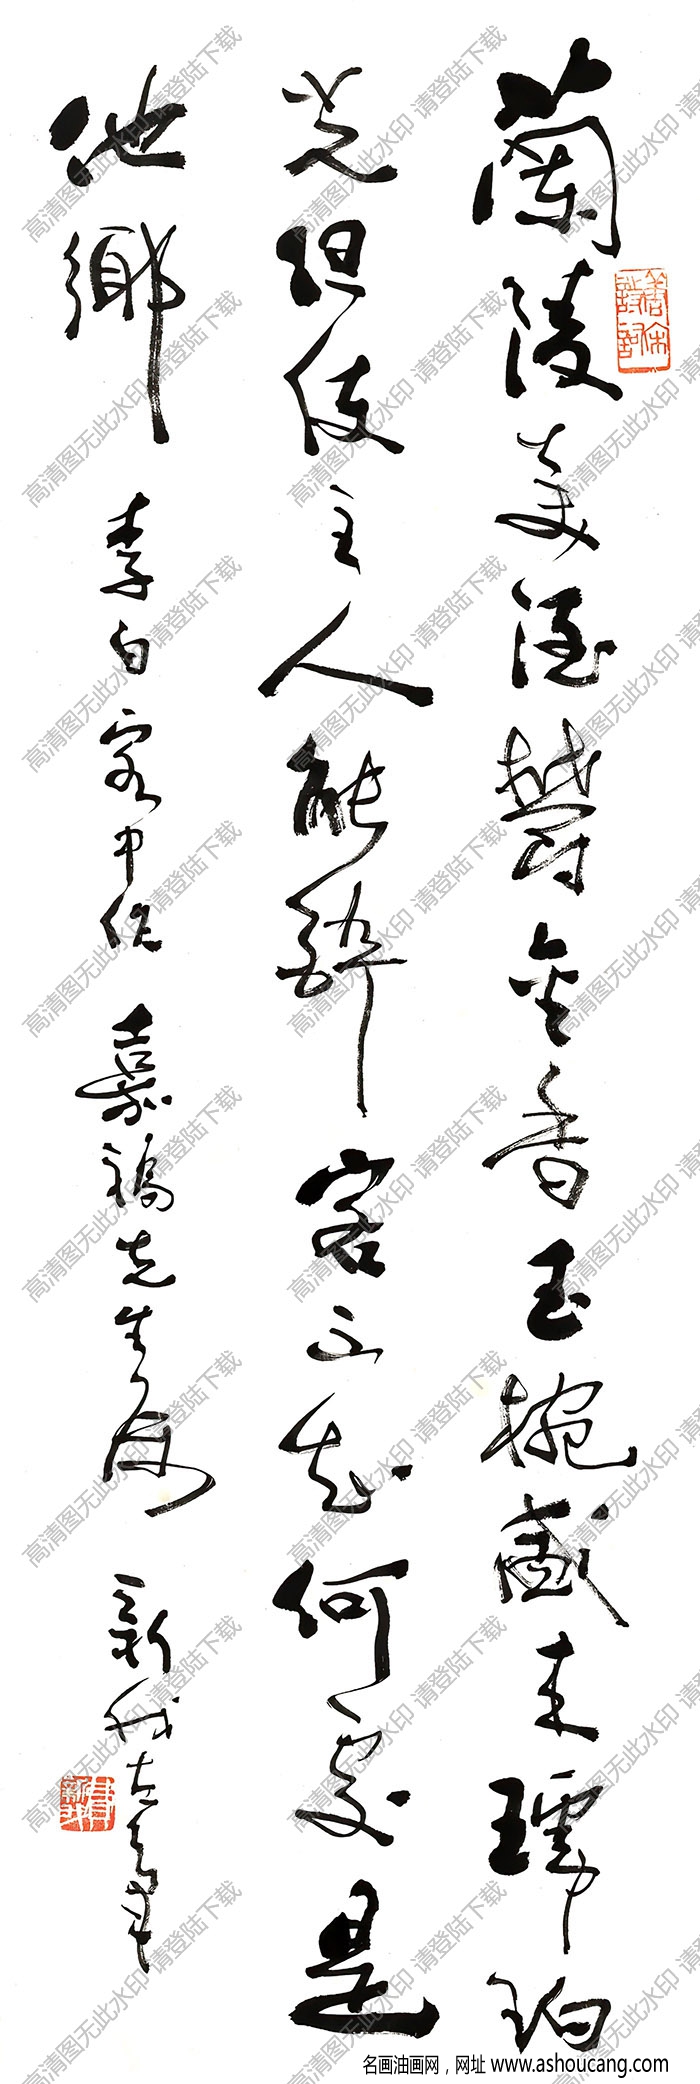 蘭陵美酒鬱金香玉椀盛来琥珀
光但使主人能醉客不知何處是
他鄉
李白客中作
嘉禍先生屬
新我左筆
名画油画网，网址 www.ashoucang.com
高清图无此水印 请登陆下载